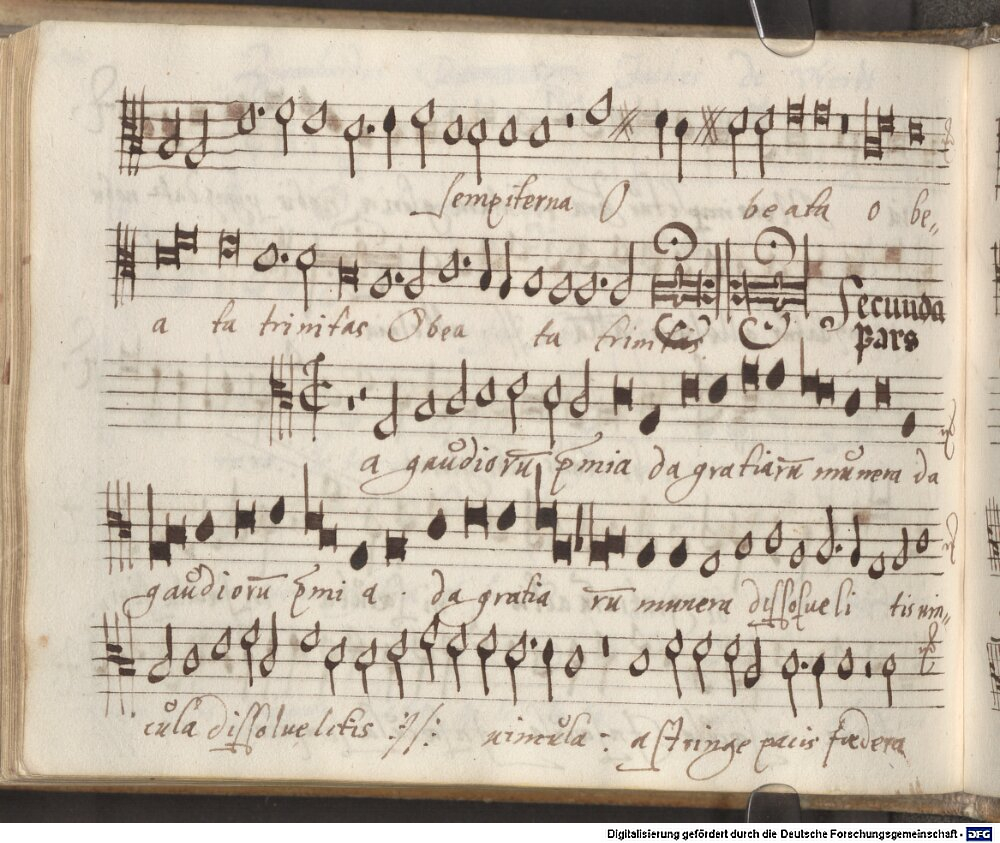 sempiterna O beata o be„
a ta trinitas O bea ta trinitas
Secunda
pars
a gaudiorū p̄mia da gratiarū munera da
gaudiorū p̄mi a da gratia rū munera dissolue li tis vin„
cula dissolue litis :// : vincula : astringe pacis foedera
Digitalisierung gefördert durch die Deutsche Forschungsgemeinschaft - DFG